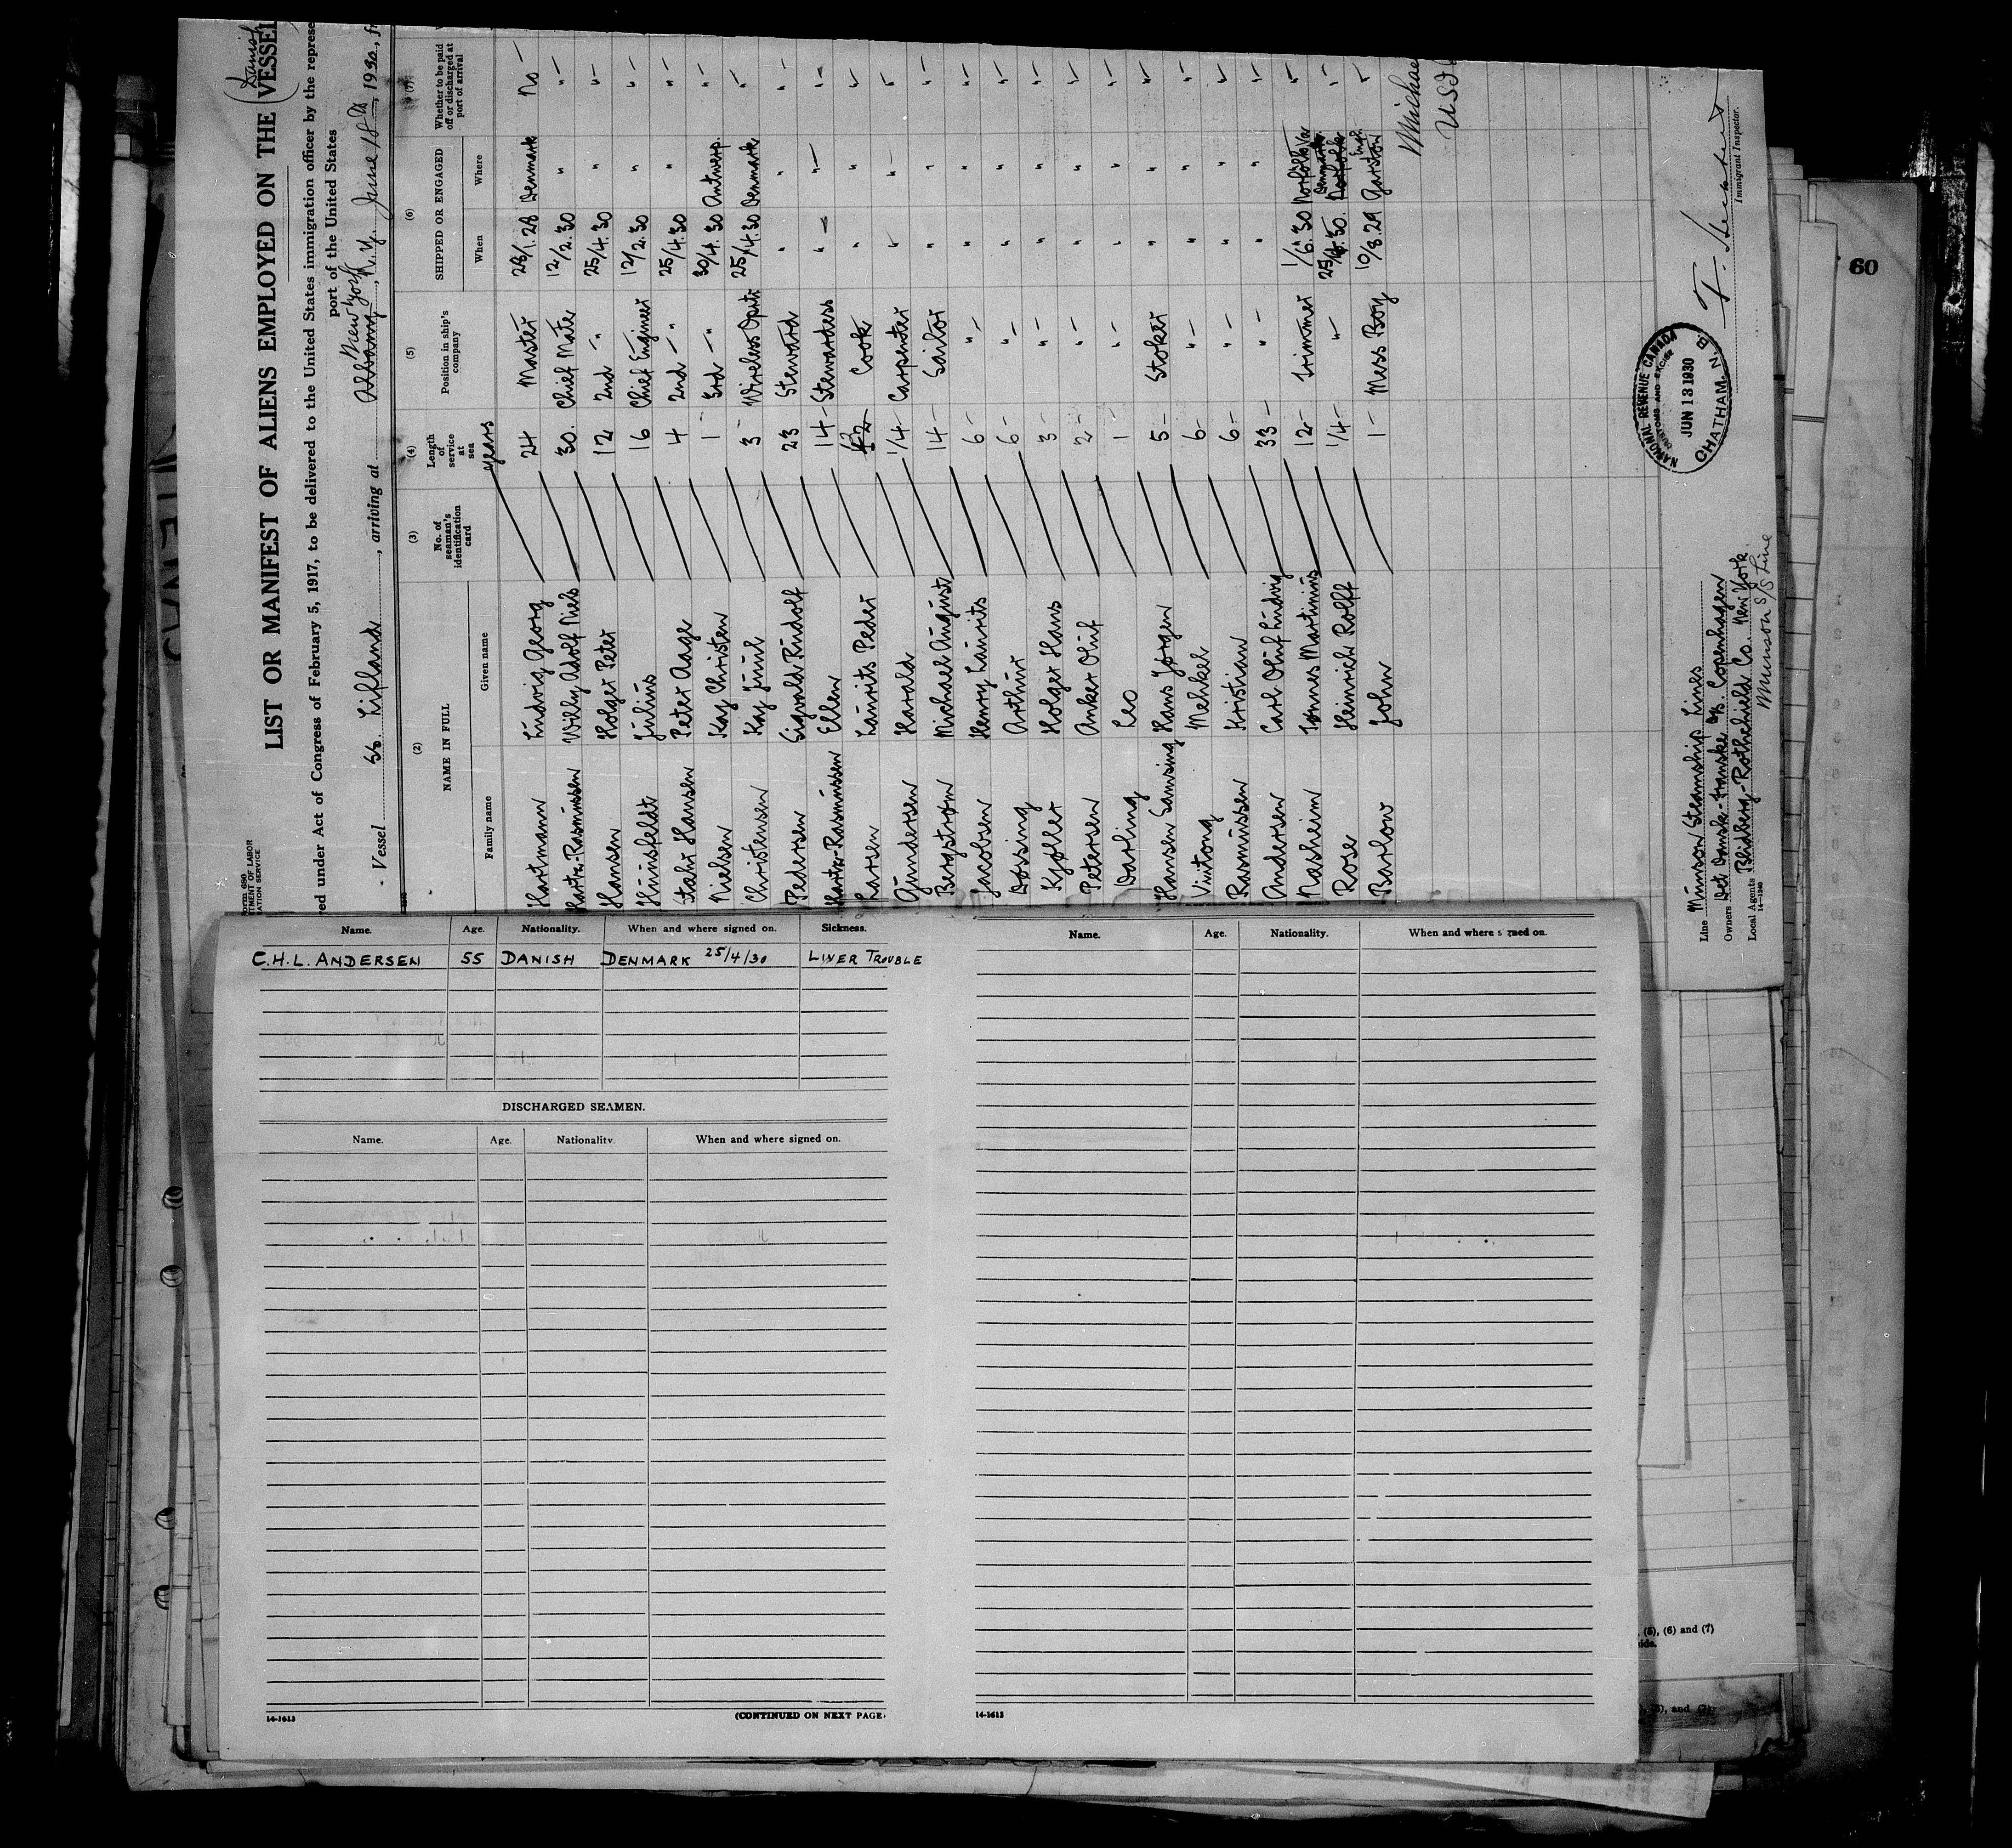 LIST OR MANIFEST OF ALIENS EMPLOYED ON THE VESSEL
Danish
ed under Act of Congress of February 5, 1917, to be delivered to the United States immigration officer by the represe
port of the United States
New York
Vessel SS. Lifland, arriving at Albany, N.Y. June 18th, 1930, fr
(2) (3) (4) (5) (6) (7)
NAME IN FULL No. of seaman's identification card Length of service at sea Position in ship's company SHIPPED OR ENGAGED Whether to be paid off or discharged at port of arrival
Family name Given name When Where
years
Hartmann Ludvig Georg 24 Master 28/1.28 Denmark No –
Hartz-Rasmussen Willy Adolf Niels 30. Chief Mate 12/2.30 " "–
Hansen Holger Peter 12 2nd –"– 25/4.30 " "–
Huusfeldt Julius 16 Chief Engineer 12/2.30 " "–
Stahr Hansen Peter Aage 4 2nd –"– 25/4.30 " "–
Nielsen Kay Christen 1– 3rd –"– 30/4.30 Antwerp. "–
Christensen Kay Juul 3– Wireless Optr 25/4.30 Denmark "–
Pedersen Sigvald Rudolf 23 Steward " " "–
Hartz-Rasmussen Ellen 14– Stewardess "– "– "–
Larsen Laurits Peder Cook " " "–
Gundersen Harald 1/4– Carpenter " "– "–
Bergstrøm Michael August 14– Sailor " " "–
Jacobsen Henry Laurits 6– "– " " "–
Døssing Arthur 6– "– " " "–
Kydler Holger Hans 3– "– " " "–
Petersen Anker Oluf 2– "– " " "–
Darling Leo 1 "– " " "–
Hansen Sansing Hans Jørgen 5– Stoker " " "–
Vintong Mehkel 6– "– " " "–
Rasmussen Kristian 6– "– " " "–
Andersen Carl Oluf Ludvig 33– "– " " "–
Masheim Martinius 12– Trimmer 1/6.30 Norfolk Va "–
Rose Heinrich Rolff 1/4– "– 25/4.30. Denmark Norfolk "–
Barlow John 1– Mess Boy 10/8.29 Garston Engl. "–
Michae
Line Munson Steamship Lines
Owners Det Danske-Franske A/S. Copenhagen
Local Agents Blidberg-Rothchield Co. New York
Munson S/S Line
14—1240
NATIONAL REVENUE CANADA
CUSTOMS AND EXCISE
JUN 13 1930
CHATHAM, N.B.
Immigrant Inspector.
60
Name. Age. Nationality. When and where signed on. Sickness.
C.H.L. ANDERSEN 55 DANISH DENMARK 25/4/30 LIVER TROUBLE
DISCHARGED SEAMEN.
Name. Age. Nationality. When and where signed on.
14-1613
(CONTINUED ON NEXT PAGE)
Name. Age. Nationality. When and where signed on.
14-1613
, (5), (6) and (7)
ide.
), and (7)